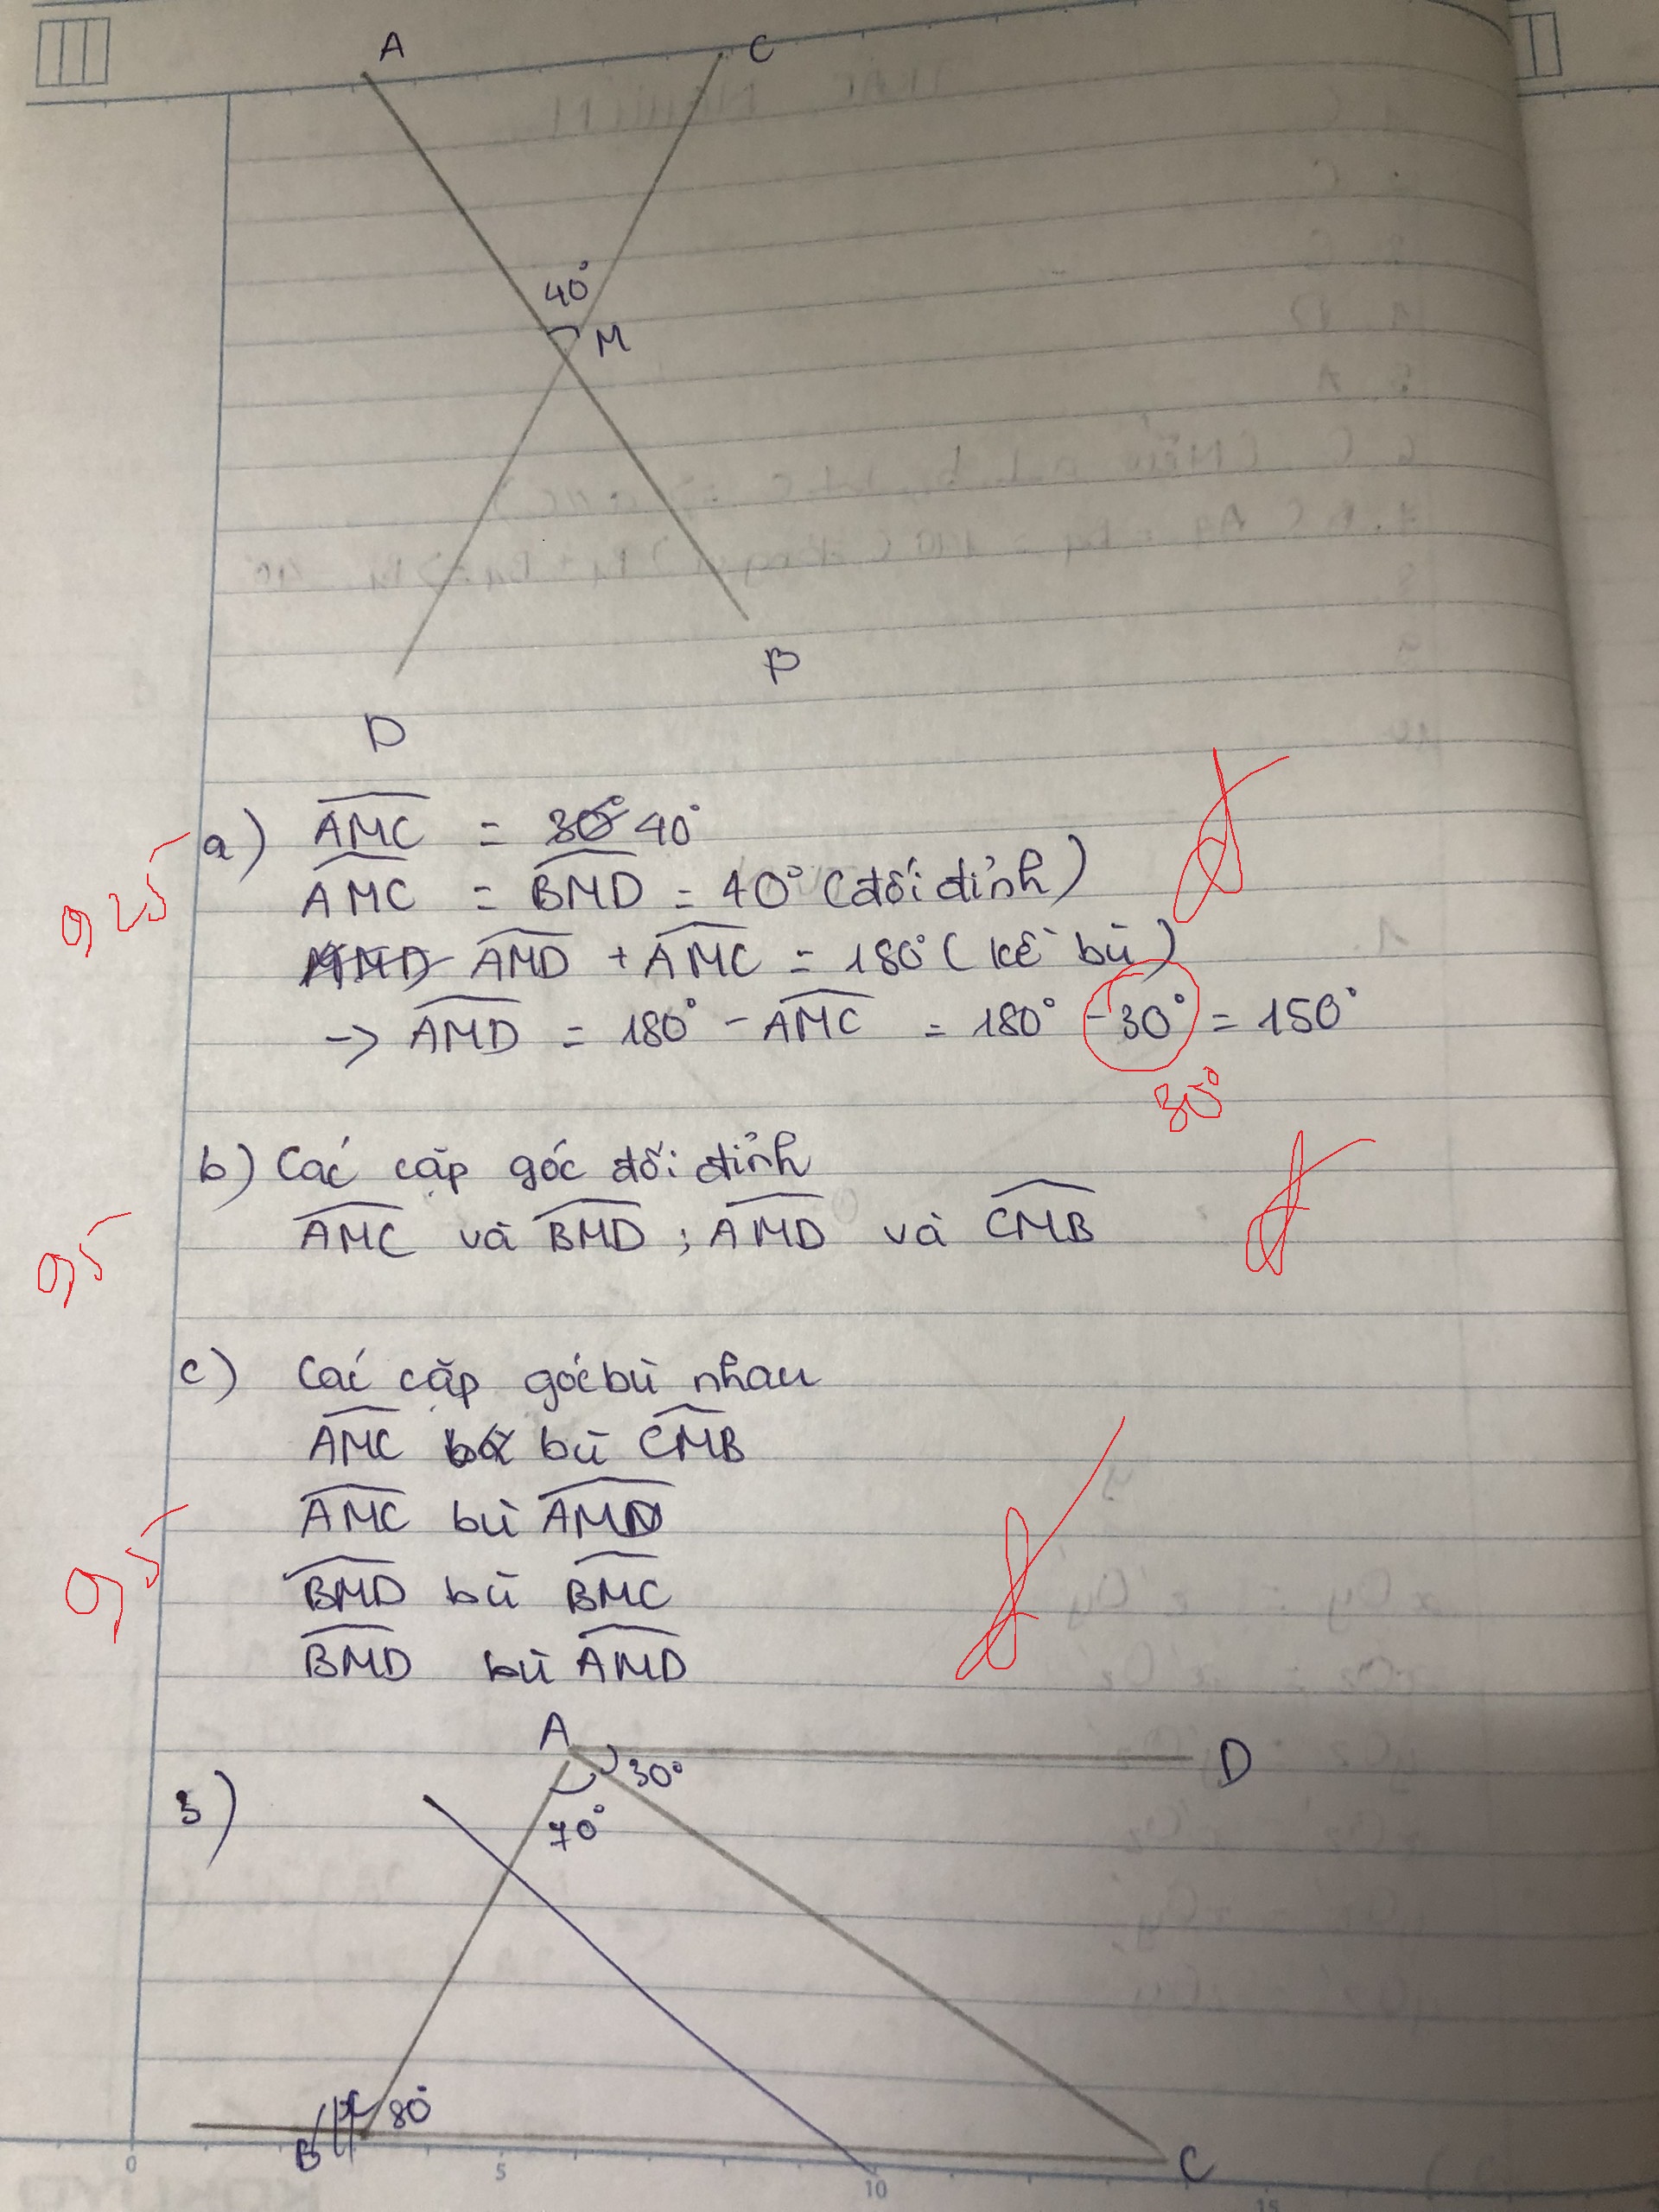 A C
40°
M
B
D
0,25
a) AMC = 30° 40°
AMC = BMD = 40° (đối đỉnh)
AMD AMD + AMC = 180° (kề bù)
-> AMD = 180° - AMC = 180° - 30° = 150°
30°
b) Các cặp góc đối đỉnh
0,5
AMC và BMD ; AMD và CMB
c) Các cặp góc bù nhau
AMC bù CMB
AMC bù AMD
0,5
BMD bù BMC
BMD bù AMD
A
D
3)
30°
70°
80°
B
C
0 5 10 15